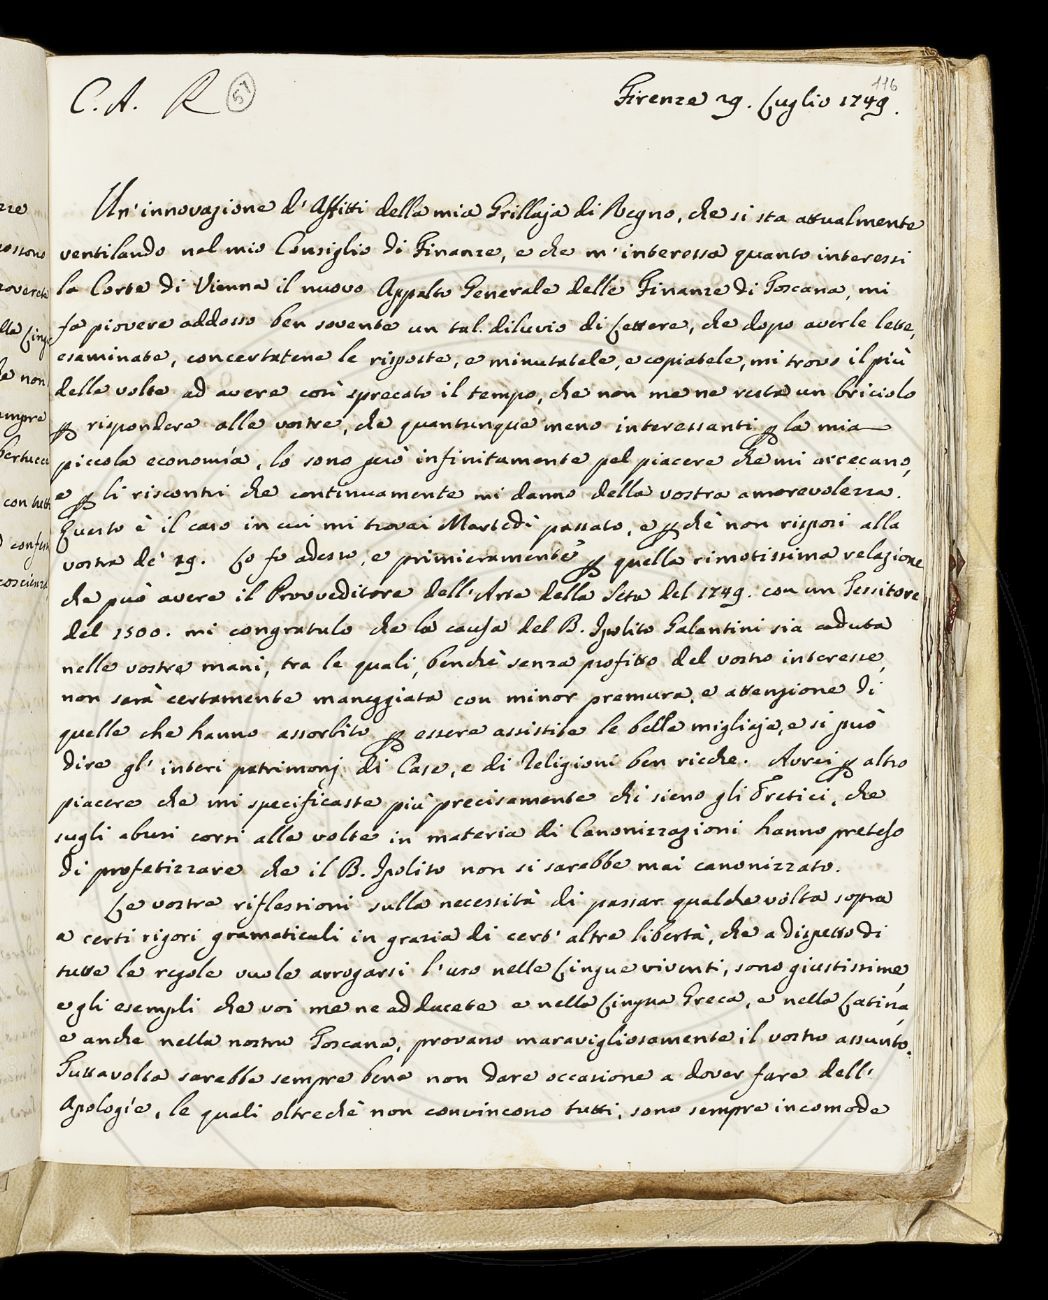 C. A. R 57
116
Firenze 29. Luglio 1749.
Un' innovazione d' Affitti della mia Grillaja di Regno, che si sta attualmente
ventilando nel mio Consiglio di Finanze, e che m' interessa quanto interessi
la Corte di Vienna il nuovo Appalto Generale delle Finanze di Toscana, mi
fa piovere addosso ben sovente un tal diluvio di Lettere, che dopo averle lette,
esaminate, concertatene le risposte, e minutatele, e copiatele, mi trovo il più
delle volte ad avere così sprecato il tempo, che non me ne resta un briciolo
ꝑ rispondere alle vostre, che quantunque meno interessanti ꝑ la mia
piccola economía, lo sono però infinitamente pel piacere che mi arrecano,
e ꝑ li riscontri che continuamente mi danno della vostra amorevolezza.
Questo è il caso in cui mi trovai Martedì passato, e ꝑchè non risposi alla
vostra de' 29. Lo fo adesso, e primieramente ꝑ quella rimotissima relazione
che può avere il Provveditore dell' Arte della Seta del 1749. con un Tessitore
del 1500. mi congratulo che la causa del B. Ipolito Galantini sia caduta
nelle vostre mani, tra le quali, benchè senza profitto del vostro interesse,
non sarà certamente maneggiata con minor premura, e attenzione di
quelle che hanno assorbito ꝑ essere assistite le belle migliaja, e si può
dire gl' interi patrimonj di Case, e di Religioni ben ricche. Avrei ꝑ altro
piacere che mi specificaste più precisamente chi sieno gli Eretici, che
sugli abusi corsi alle volte in materia di Canonizzazioni hanno preteso
di profetizzare che il B. Ipolito non si sarebbe mai canonizzato.
Le vostre riflessioni sulla necessità di passar qualche volta sopra
a certi rigori gramaticali in grazia di cert' altre libertà, che a dispetto di
tutte le regole vuole arrogarsi l' uso nelle Lingue viventi, sono giustissime,
e gli esempli che voi me ne adducete e nella Lingua Greca, e nella Latina,
e anche nella nostra Toscana, provano maravigliosamente il vostro assunto.
Tuttavolta sarebbe sempre bene non dare occasione a dover fare dell'
Apologíe, le quali oltrechè non convincono tutti, sono sempre incomode